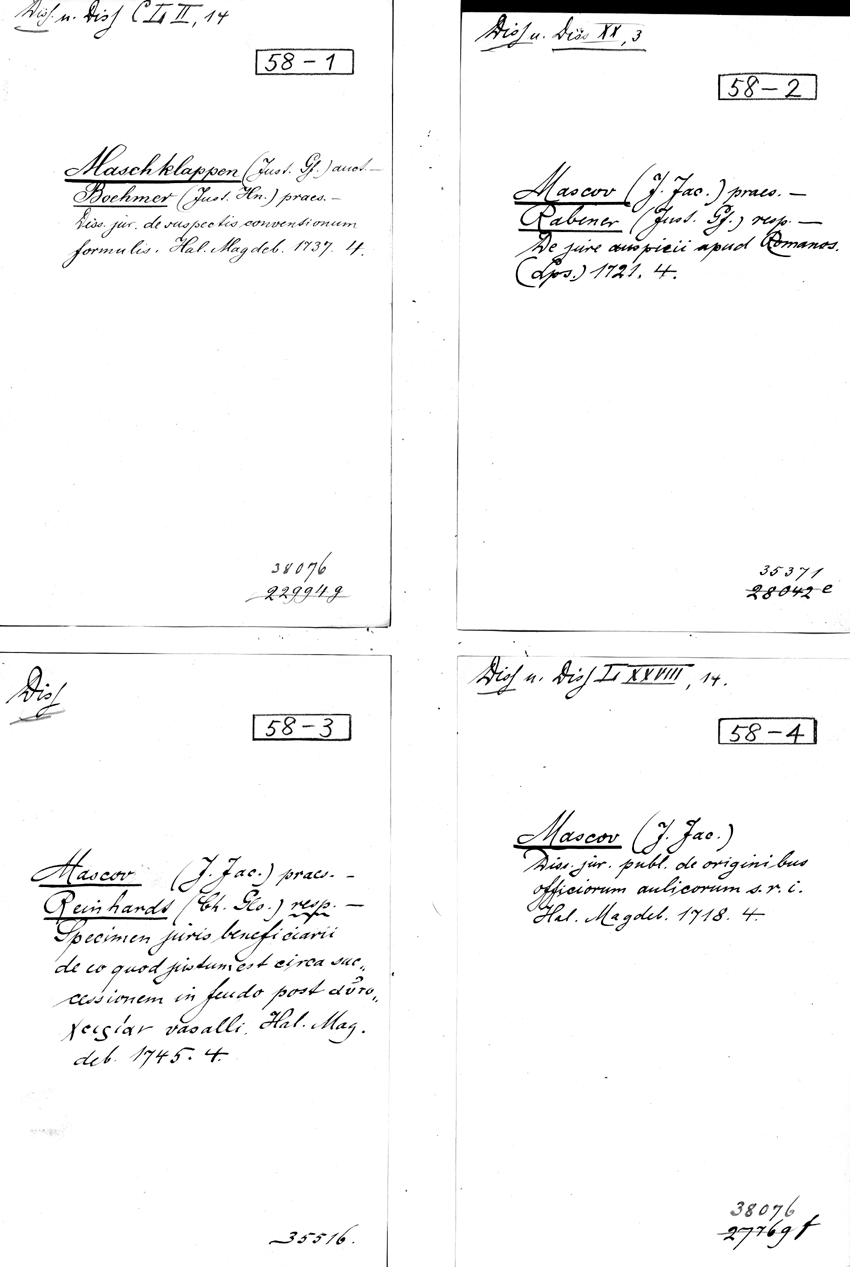 Diss. u. Diss C L II, 14
58-1
Maschklappen (Just. Gf.) auct. –
Boehmer (Just. Hn.) praes. –
Diss. jur. de suspectis conventionum
formulis. Hal. Magdeb. 1737. 4.
38076
22994g
Diss u. Diss XX, 3
58-2
Mascov (J. Jac.) praes. –
Rabener (Just. Gf.) resp. –
De jure auspicii apud Romanos.
(Lps.) 1721. 4.
35371
28042 e
Diss
58-3
Mascov (J. Jac.) praes. –
Reinhardt (Ch. Glo.) resp. –
Specimen juris beneficiarii
de eo quod justum est circa suc„
cessionem in feudo post αὐτο„
χειρίαν vasalli. Hal. Mag.
deb. 1745. 4.
35516.
Diss u. Diss L XXVIII, 14.
58-4
Mascov (J. Jac.)
Diss. jur. publ. de originibus
officiorum aulicorum s. r. i.
Hal. Magdeb. 1718. 4.
38076
27769 f